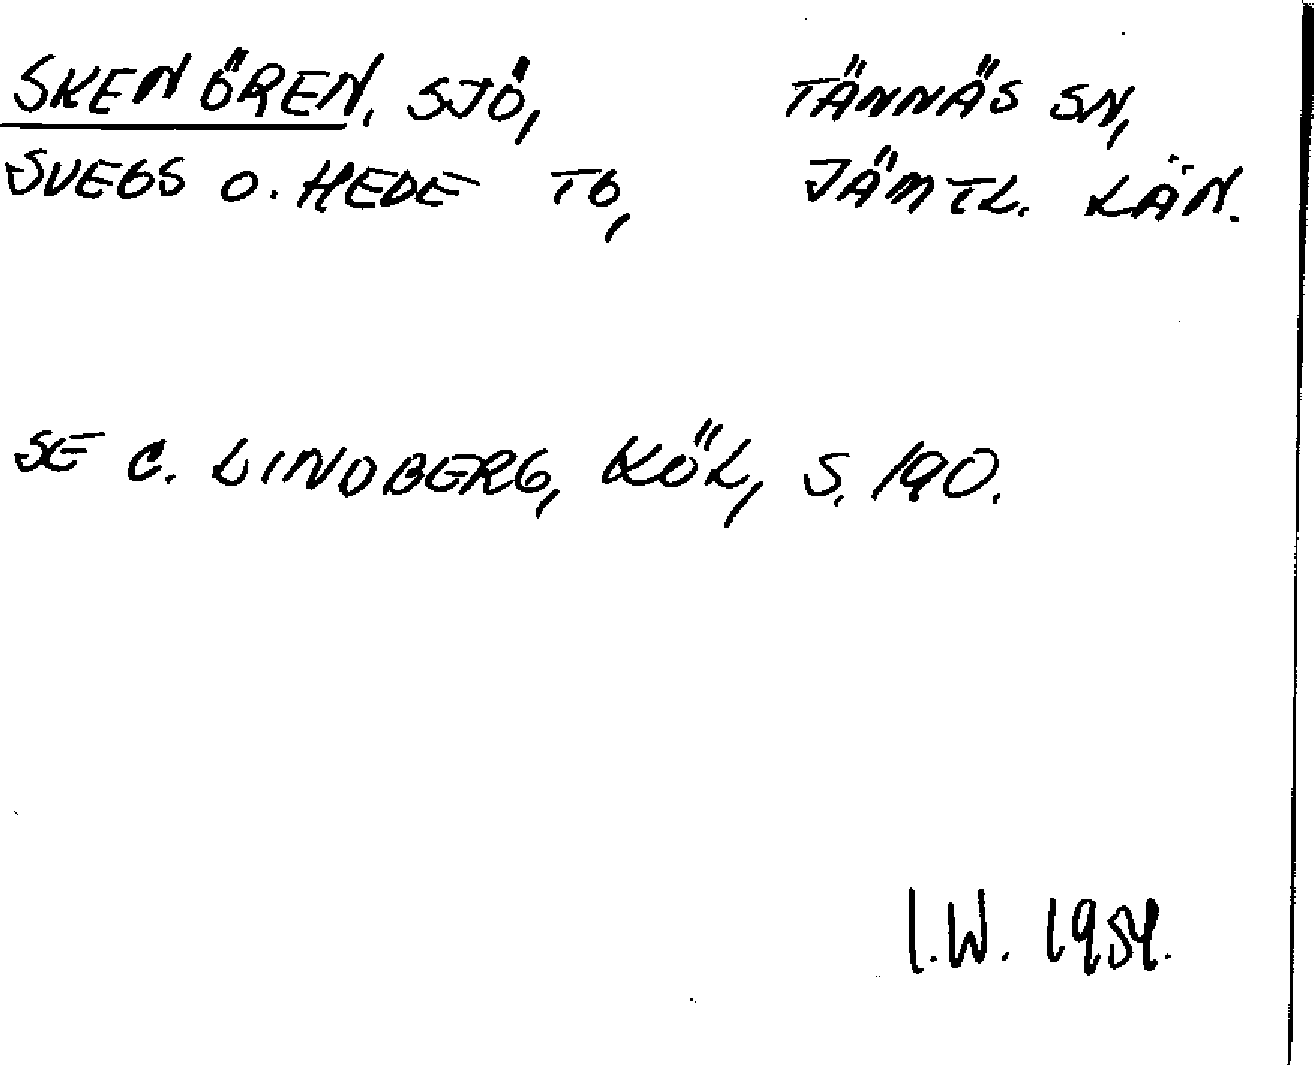 SKENÖREN. SJÖ, TÄNNÄS SN,
SVEGS O. HEDE TG, JÄMTL. LÄN.
SE C. LINDBERG, KÖL, S. 190.
I.W.